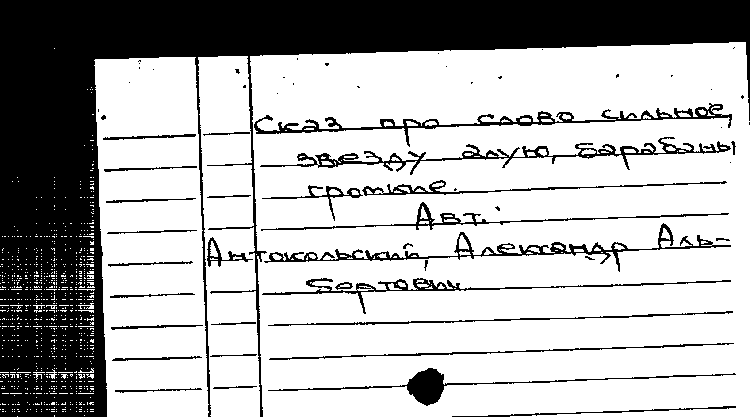 Сказ про слово сильное,
звезду алую, барабаны
громкие.
Авт.:
Антокольский, Александр Аль-
бертович